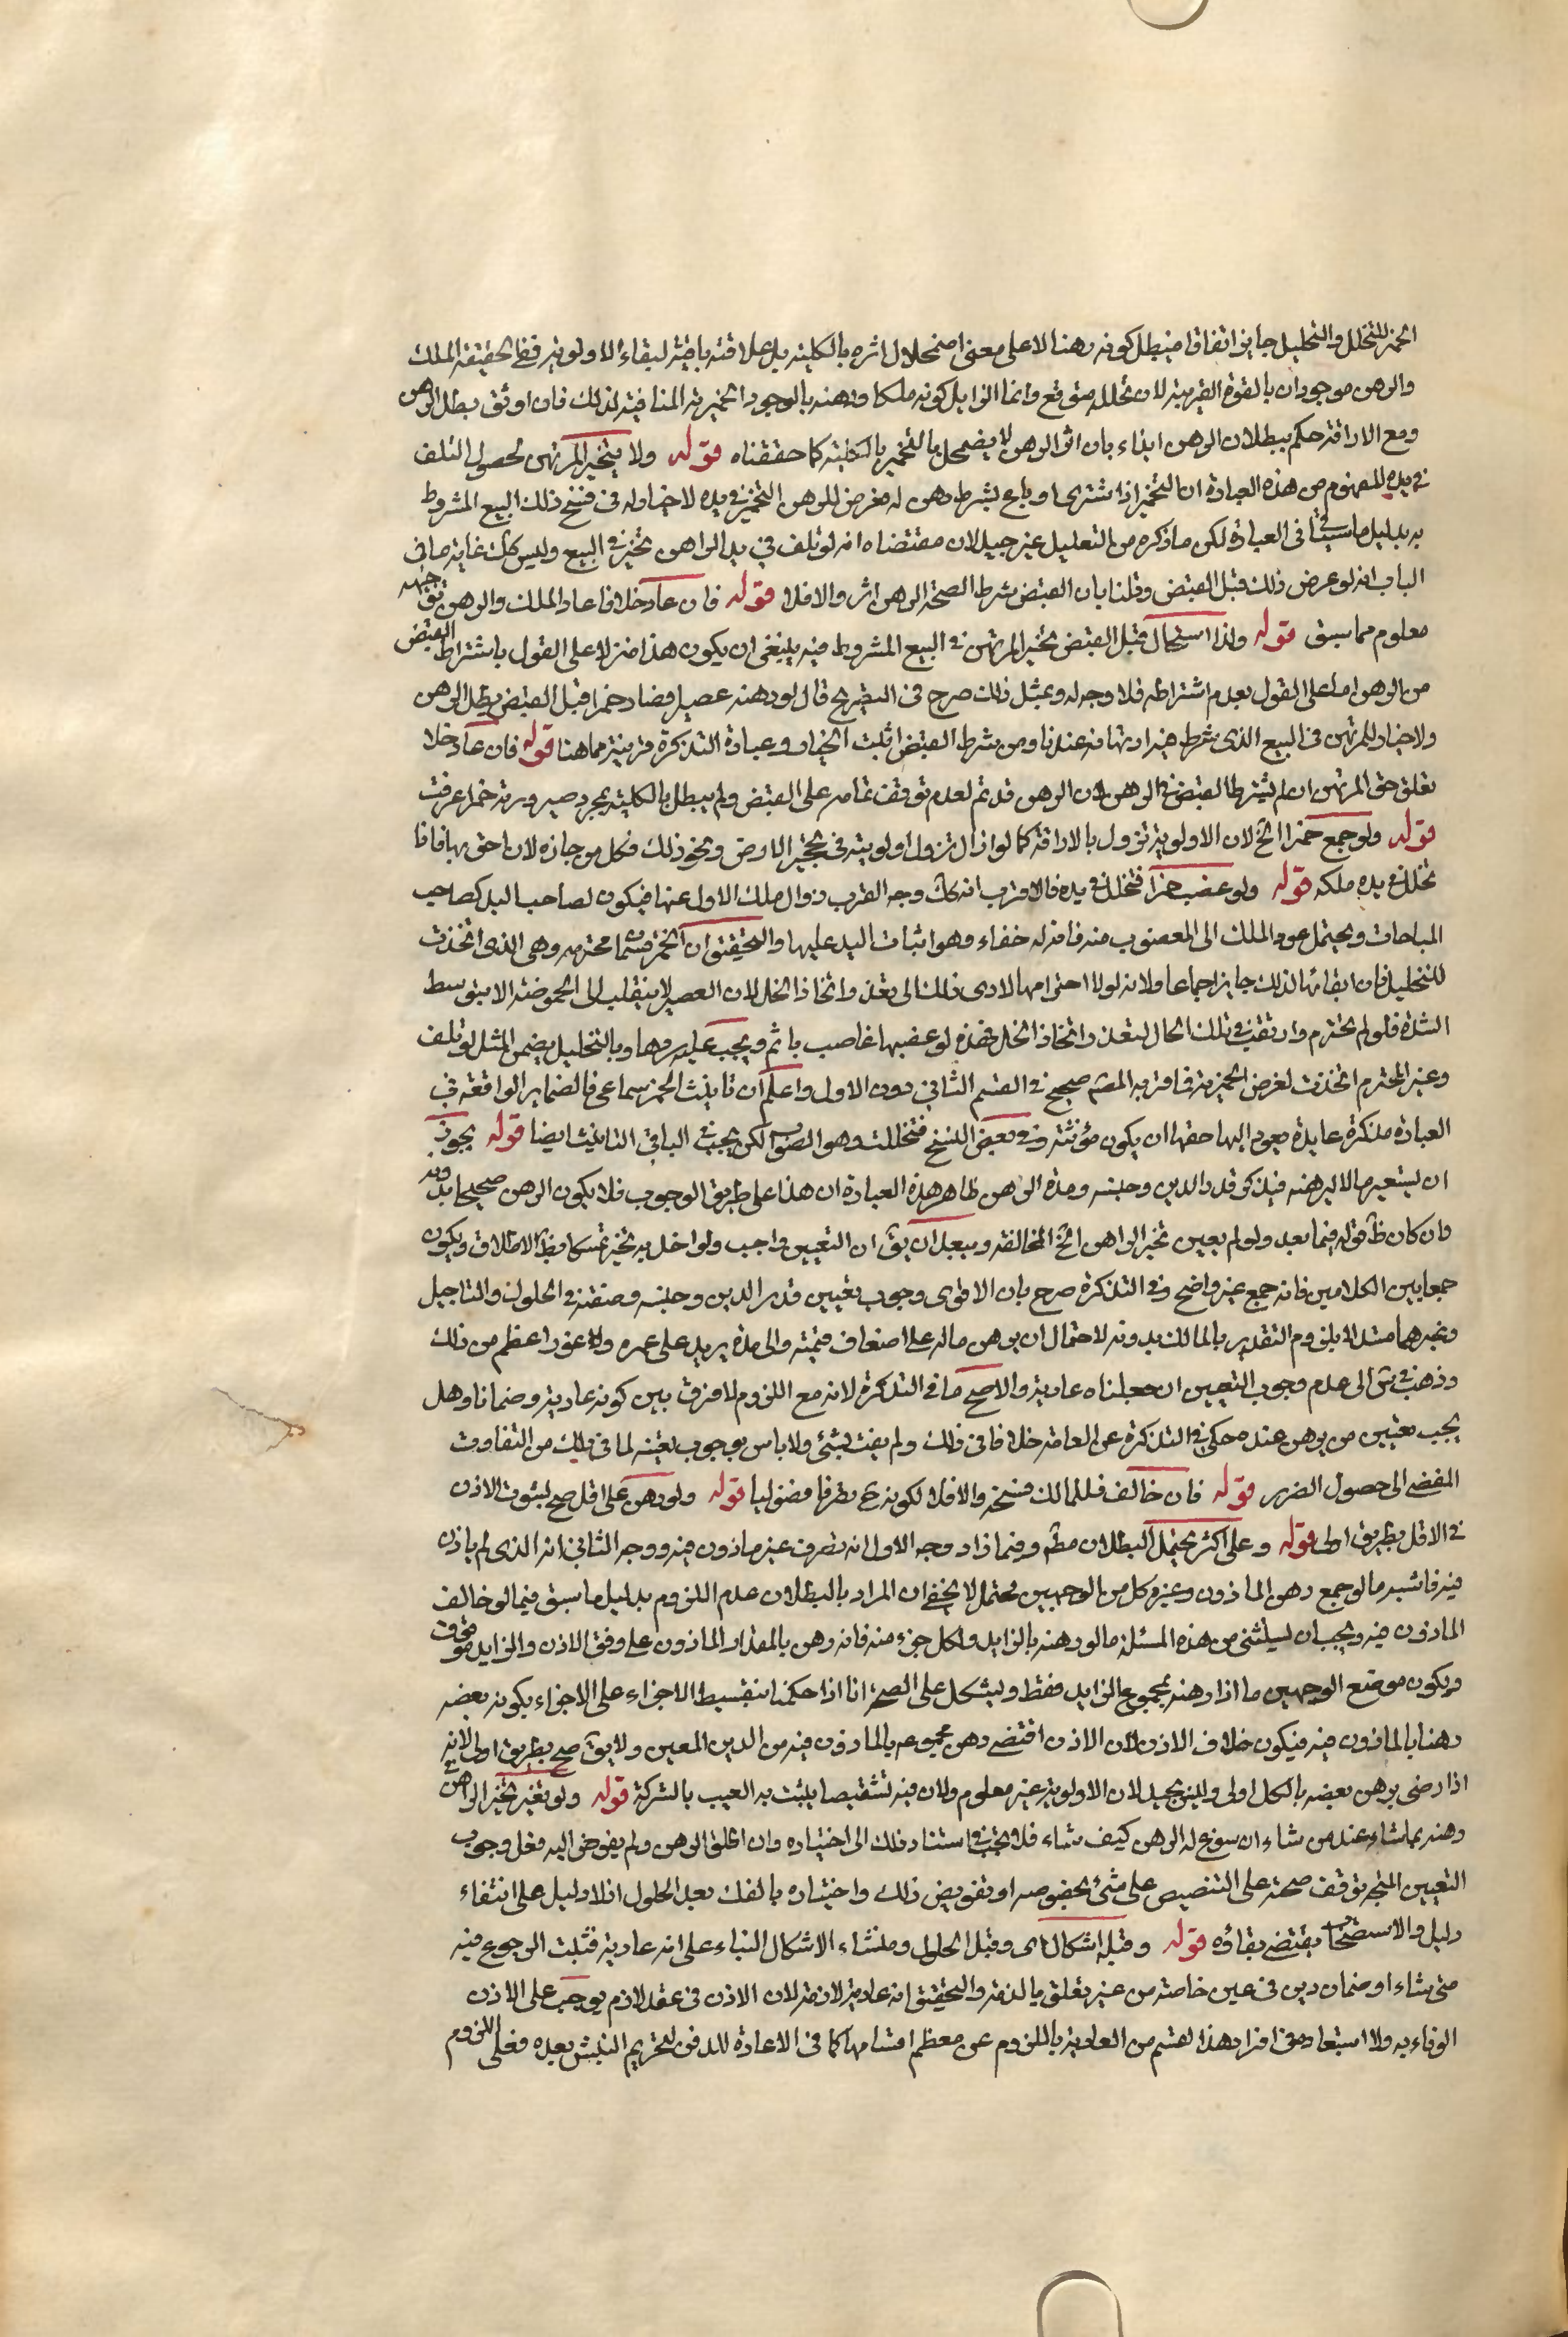 الخمر للتخلل والتخليل جايز اتفاقا فيبطل كونه رهنا لا على معنى اضمحلال اثره بالكلية بل علاقته باقية لبقاء الاولوية ففى الحقيقة الملك
والرهن موجودان بالقوة القريبة لان تخلله متوقع وانما الزايل كونه ملكا ورهنه بالوجود الخمرية المنافية لذلك فان اريق بطل الرهن
ومع الاراقة حكم ببطلان الرهن ايذاء بان اثر الرهن لا يضمحل بالتخمير بالكلية كما حققناه قوله ولا يتخير المرتهن لحصول التلف
في يده المفهوم من هذه العبارة ان التخمير اذا اشترى او باع بشرط رهن له فعرض للرهن التخمير في يده لا خيار له فى فسخ ذلك البيع المشروط
به بدليل ما سياتى فى العبارة لكن ما ذكره من التعليل غير جيد لان مقتضاه انه لو تلف في يد الراهن تخير في البيع وليس كك غاية ما في
الباب انه لو عرض ذلك قبل القبض وقلنا بان القبض شرط لصحة الرهن اثر والا فلا قوله فان عاد خلا عاد الملك والرهن توجيهه
معلوم مما سبق قوله ولو استحال قبل القبض تخير المرتهن في البيع المشروط فيه ينبغى ان يكون هذا منزلا على القول باشتراط القبض
من الرهن اما على القول بعدم اشتراطه فلا وجه له وبمثل ذلك صرح فى التحرير قال لو رهنه عصيرا فصار خمرا قبل القبض بطل الرهن
ولا خيار للمرتهن فى البيع الذى شرط فيه ارتهانه عندنا ومن شرط القبض اثبت الخيار وعبارة التذكرة قريبة مما هنا قوله فان عاد خلا
تعلق حق المرتهن ان لم يشترط القبض في الرهن لان الرهن قد تم لعدم توقف تمامه على القبض ولم يبطل بالكلية بمجرد صيرورته خمرا عرفت
قوله ولو جمع خمرا الخ لان الاولوية تزول بالاراقة كما لو ازال تزول اولويته فى تحجير الارض ونحو ذلك فكل من حازه لان احق بها فاذا
تخلل في يده ملكه قوله ولو غصب خمرا فتخلل في يده فالاقرب انه كك وجه القرب زوال ملك الاول عنها فيكون لصاحب اليد كصاحب
المباحات ويحتمل عود الملك الى المغصوب منه فان له خفاء وهو اثبات اليد عليها والتحقيق ان الخمر قسمان محترمه وهى الذى اتخذت
للتخليل فان ابقائها لذلك جايز اجماعا ولانه لولا احترامها لادى ذلك الى تعذر اتخاذ الخل لان العصير لا ينقلب الى الحموضة الا بتوسط
الشدة فلو لم يحترم واريقت في تلك الحال لتعذر اتخاذ الخل فهذه لو غصبها غاصب ياثم ويجب عليه ردها وبالتخليل يضمن المثل لو تلف
وغير المحترم اتخذت لغرض الخمرية فما قربه المصنف صحيح فى القسم الثاني دون الاول واعلم ان تانيث الخمر سماعى فالضماير الواقعة في
العبارة مذكرة عايدة يعود اليها حقها ان يكون مؤنثة وفى بعض النسخ فتخللت وهو الصواب لكن يجب في الباقي التانيث ايضا قوله يجوز
ان يستعير مالا ليرهنه فيذكر قدر الدين وجنسه ومدة الرهن ظاهر هذه العبارة ان هذا على طريق الوجوب فلا يكون الرهن صحيحا بدونه
وان كان ظ قوله فيما بعد ولو لم يعين تخير الراهن الخ المخالفة ويبعد ان يق ان التعيين واجب ولو اخل به تخير تمسكا بظ الاطلاق ويكون
جمعا بين الكلامين فانه جمع غير واضح وفى التذكرة صرح بان الاقوى وجوب تعيين قدر الدين وجنسه وصفته في الحلول والتاجيل
وغيرهما مستدلا بلزوم التقدير بالمالك بدونه لاحتمال ان يرهن ماله على اضعاف قيمته والى مدة يزيد على عمره ولا غرر اعظم من ذلك
وذهب في ش الى عدم وجوب التعيين ان جعلناه عارية والاصح ما فى التذكرة لانه مع اللزوم لا فرق بين كونه عارية وضمانا وهل
يجب تعيين من يرهن عنده حكى في التذكرة عن العامة خلافا فى ذلك ولم يفت بشئ ولا باس بوجوب تعيينه لما فى ذلك من التفاوت
المفضى الى حصول الضرر قوله فان خالف فللمالك فسخه والا فلا لكونه ح تصرفا فضوليا قوله ولو رهن على اقل صح لثبوت الاذن
في الاقل بطريق اولى قوله وعلى اكثر يحتمل البطلان مطلقا وفيما زاد وجه الاول انه تصرف غير ماذون فيه ووجه الثاني انه الذى لم ياذن
فيه فاشبه ما لو جمع رهن الماذون وغيره كل من الوجهين محتمل لا يخفى ان المراد بالبطلان عدم اللزوم بدليل ما سبق فيما لو خالف
الماذون فيه ويجب ان يستثنى من هذه المسئلة ما لو رهنه بالزايد ولكل جزء منه فانه رهن بالمقدار الماذون على وفق الاذن والزايد موقوف
ويكون موضع الوجهين ما اذا رهنه بمجموع الزايد فقط ويشكل على الصحة انا اذا حكمنا بتقسيط الاجزاء على الاجزاء يكون بعضه
رهنا بالماذون فيه فيكون خلاف الاذن لان الاذن اقتضى رهن مجموعه بالماذون فيه من الدين المعين ولا يق صح بطريق اولى لانه
اذا رضى برهن بعضه بالكل اولى وليس بجيد لان الاولوية غير معلوم ولان فيه تشقيصا يثبت به العيب بالشركة قوله ولو تغير تخير الراهن في
رهنه بما شاء عند من شاء ان سوغ له الرهن كيف شاء فلا بحث في استناد ذلك الى اختياره وان اطلق الرهن ولم يفوض اليه فعل وجوب
التعيين المتجه توقف صحته على التنصيص على شئ بخصوصه او تفويض ذلك واختياره بالفك بعد الحلول اذ لا دليل على انتفاء
دليل والاستصحاب يقتضى بقاؤه قوله وقبله اشكال اى وقبل الحلول ومنشاء الاشكال البناء على انه عارية فثبت الرجوع فيه
متى شاء او ضمان دين فى عين خاصة من غير تعلق بالذمة والتحقيق انه عارية لازمة لان الاذن فى عقد لازم يوجب على الاذن
الوفاء به ولا استبعاد فى افراد هذا القسم من العارية باللزوم عن معظم اقسامها كما فى الاعارة للدفن لتحريم النبش بعده فعلى اللزوم